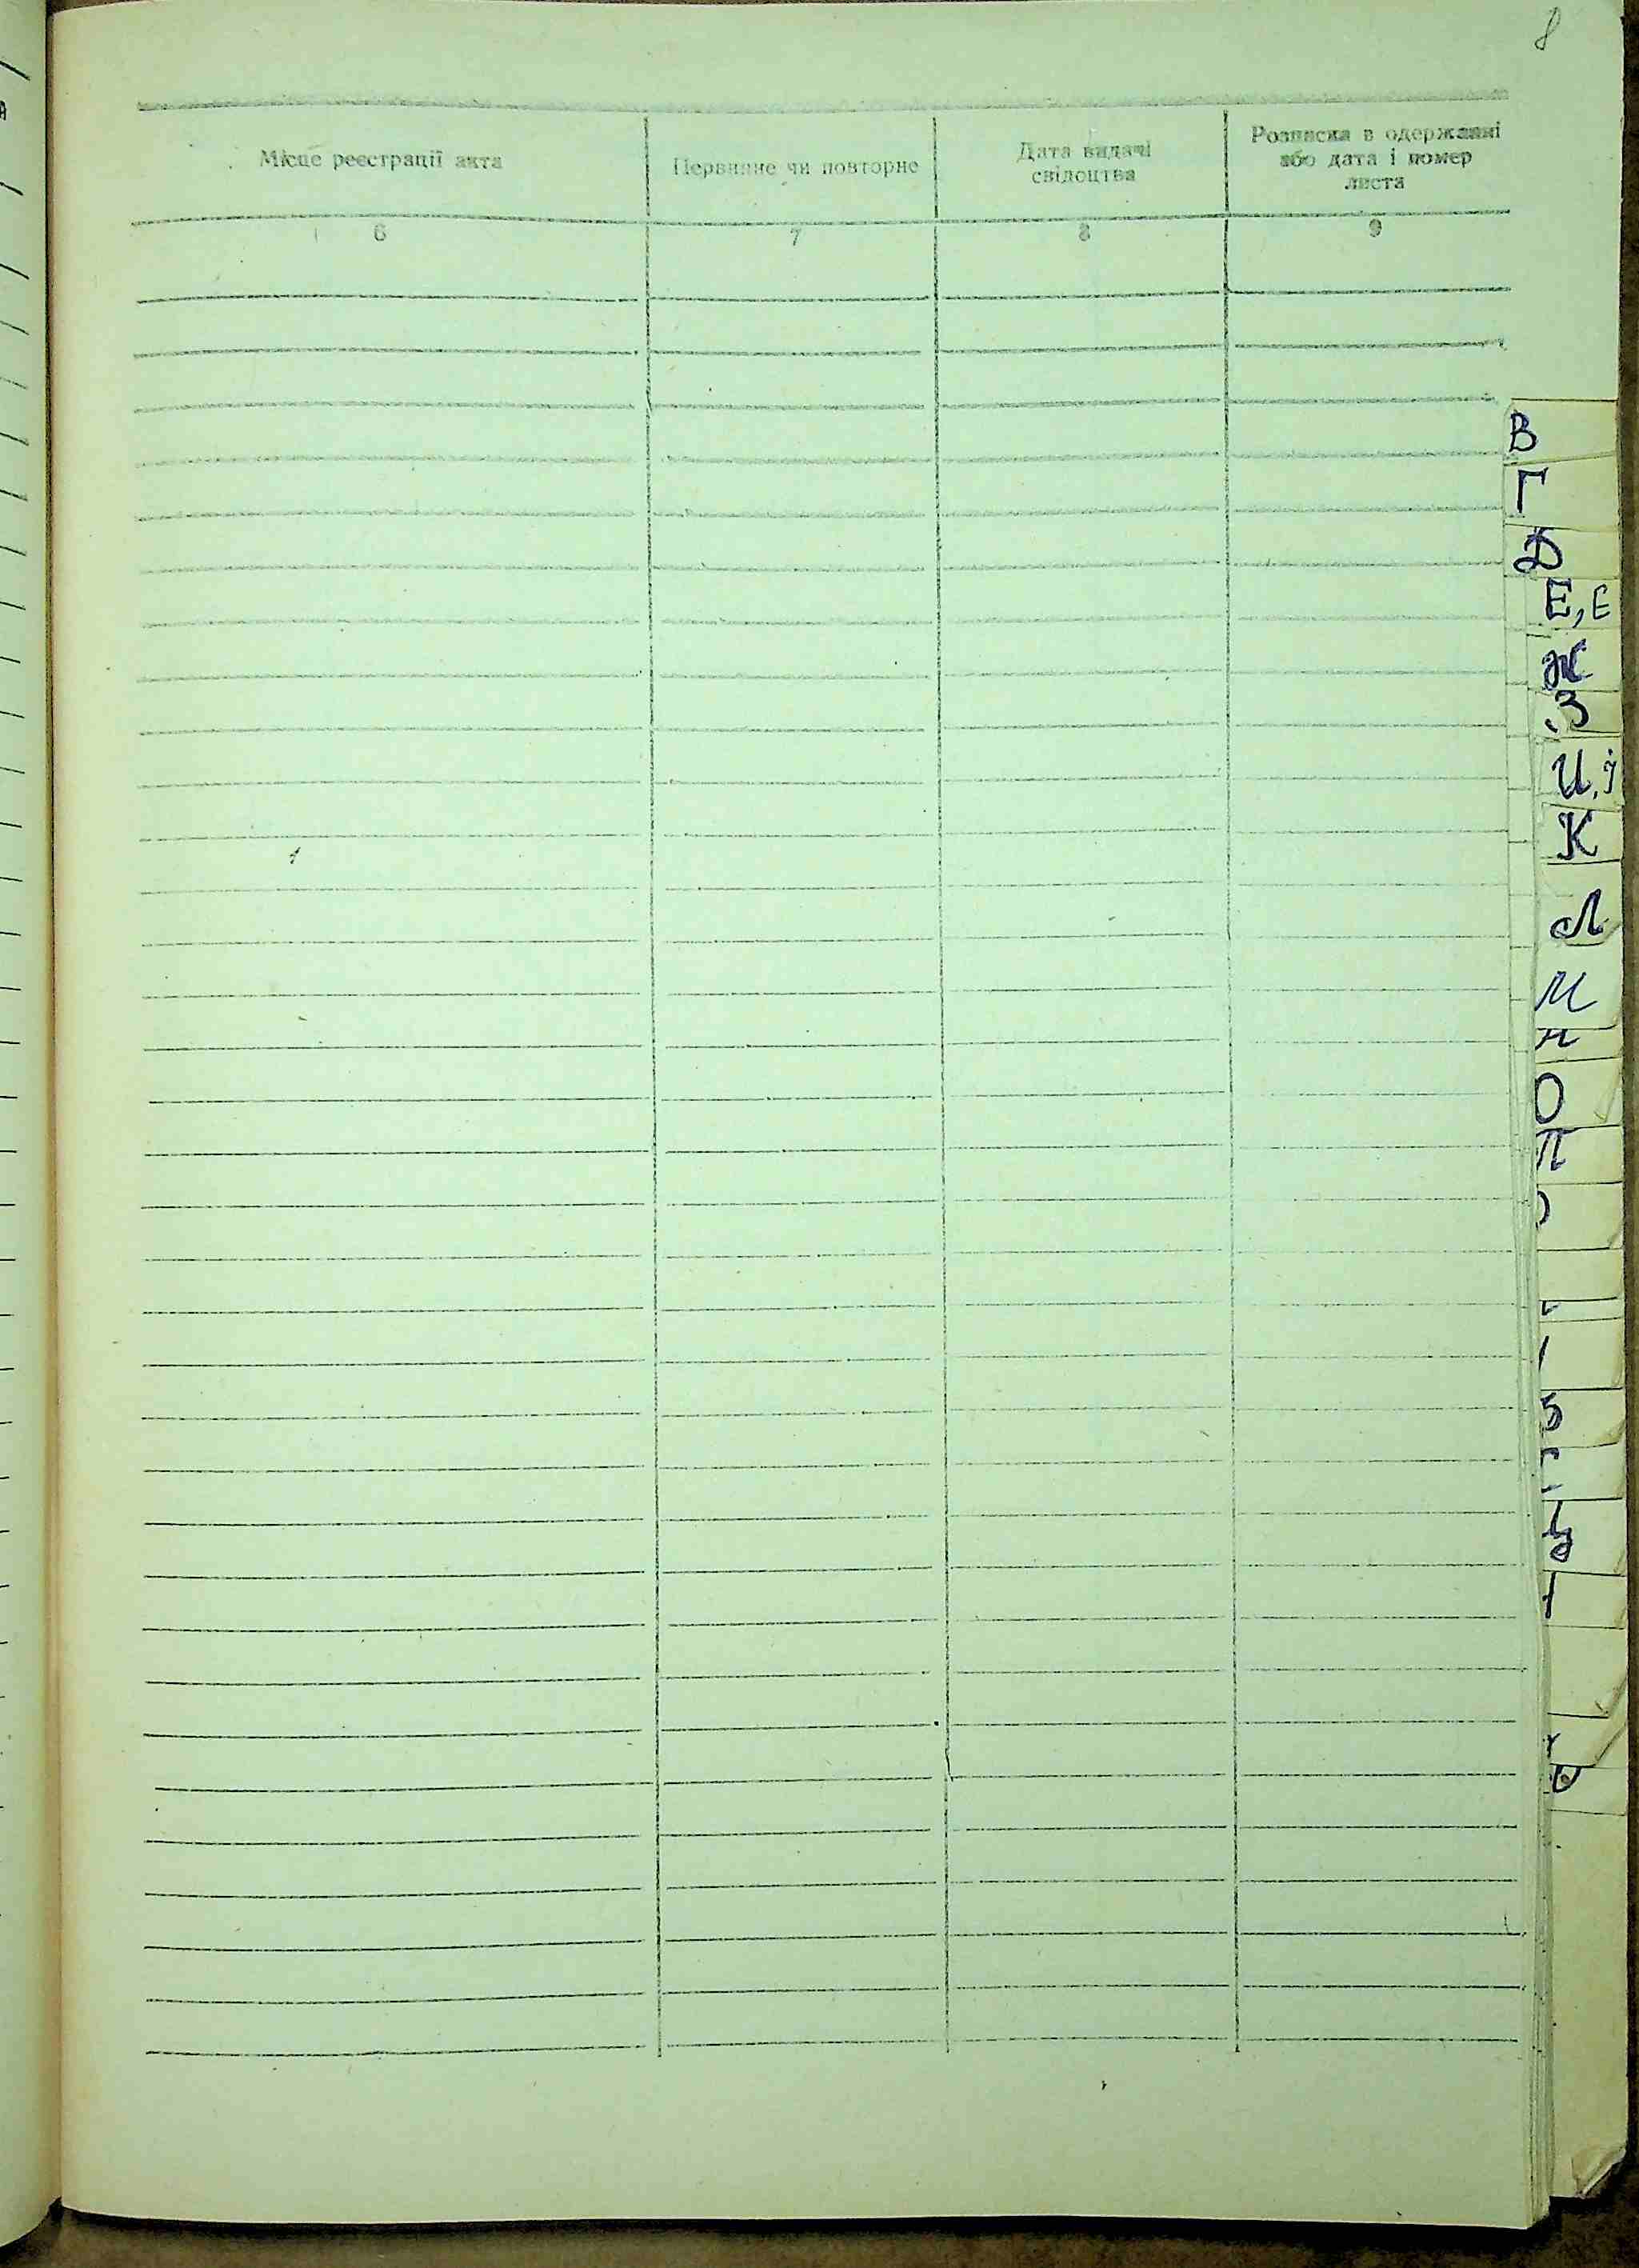 8
Місце реєстрації акта
Первинне чи повторне
Дата видачі
свідоцтва
Розписка в одержанні
або дата і номер
листа
6
7
8
9
В
Г
Д
Е, Є
Ж
З
И, І
К
Л
М
Н
О
П